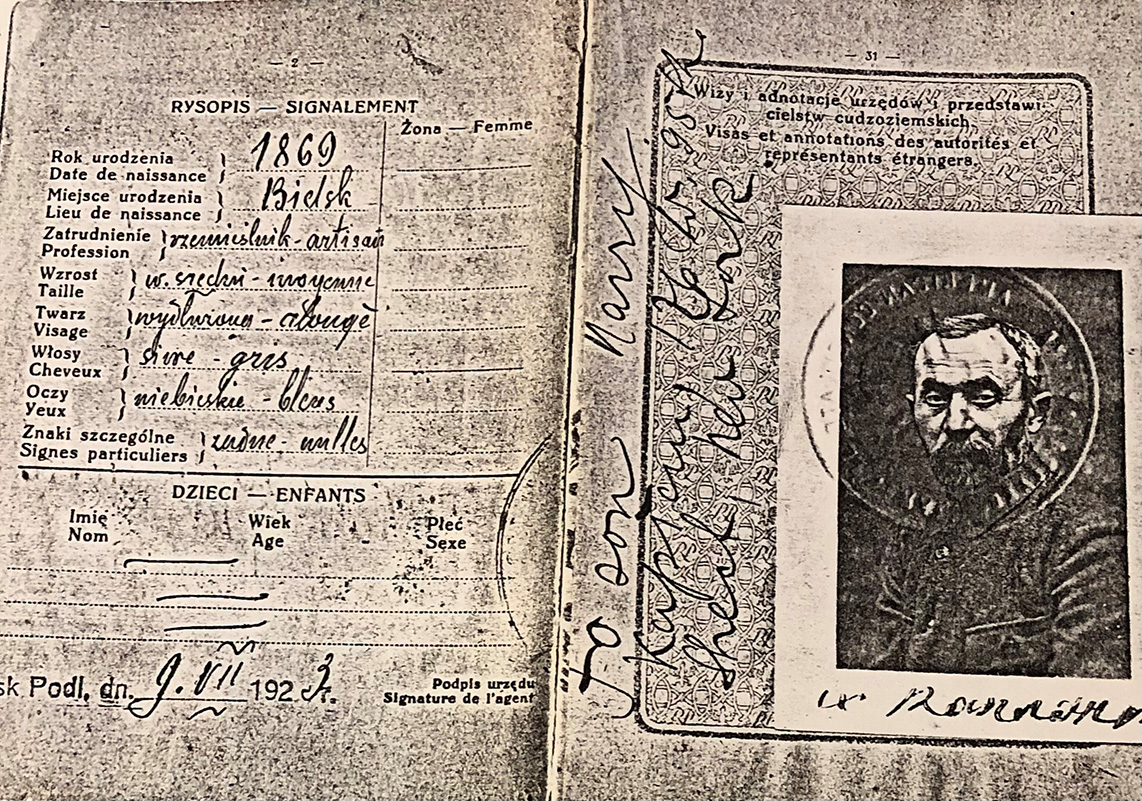 — 2 —
RYSOPIS — SIGNALEMENT
Żona — Femme
Rok urodzenia
Date de naissance
1869
Miejsce urodzenia
Lieu de naissance
Bielsk
Zatrudnienie
Profession
rzemieślnik - artisan
Wzrost
Taille
w. średni - moyenne
Twarz
Visage
wydłużona - alongé
Włosy
Cheveux
siwe - gris
Oczy
Yeux
niebieskie - bleus
Znaki szczególne
Signes particuliers
żadne - nulles
DZIECI — ENFANTS
Imię
Nom
Wiek
Age
Płeć
Sexe
sk Podl. dn. 9. VII 1923 r.
Podpis urzędu
Signature de l'agent
— 31 —
Wizy i adnotacje urzędów i przedstawi-
cielstw cudzoziemskich.
Visas et annotations des autorités et
représentants étrangers.
To son Harry
Street, New York